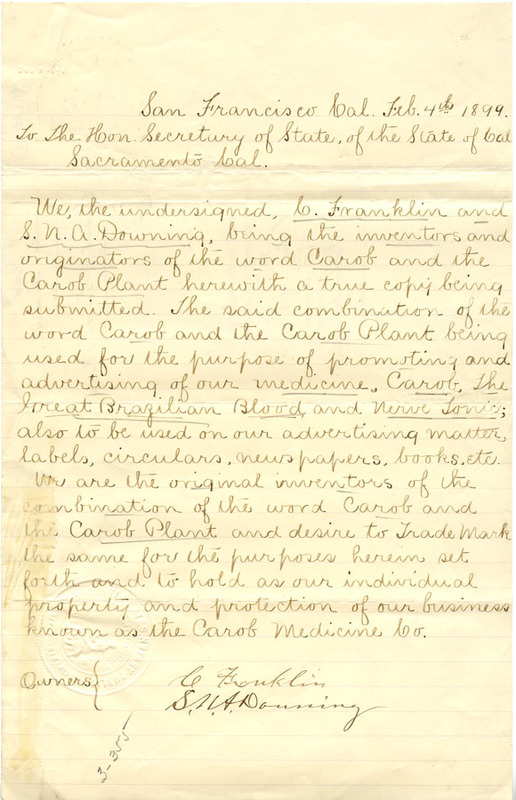 San Francisco Cal. Feb. 4th 1899.
To The Hon. Secretary of State, of the State of Cal
Sacramento Cal.
We, the undersigned, C. Franklin and
S. N. A. Downing, being the inventors and
originators of the word Carob and the
Carob Plant herewith a true copy being
submitted. The said combination of the
word Carob and the Carob Plant being
used for the purpose of promoting and
advertising of our medicine, Carob, The
Great Brazilian Blood and Nerve Tonic;
also to be used on our advertising matter,
labels, circulars, newspapers, books, etc.
We are the original inventors of the
combination of the word Carob and
the Carob Plant and desire to Trade Mark
the same for the purposes herein set
forth and to hold as our individual
property and protection of our business
known as the Carob Medicine Co.
Owners { C Franklin
S. N. A. Downing
3-355